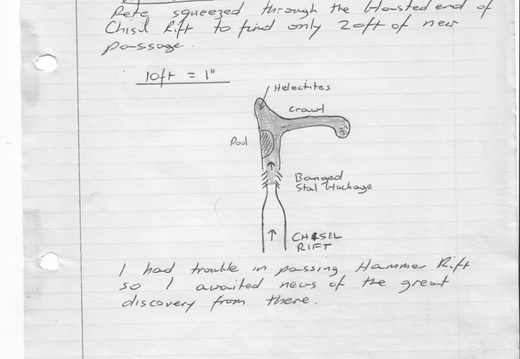 Pete squeezed through the blasted end of
Chisil Rift to find only 20ft of new
passage.
10ft = 1"
Helectites
Crawl
Pool
Banged
Stal blockage
CHISIL
RIFT
I had trouble in passing Hammer Rift
so I awaited news of the great
discovery from there.